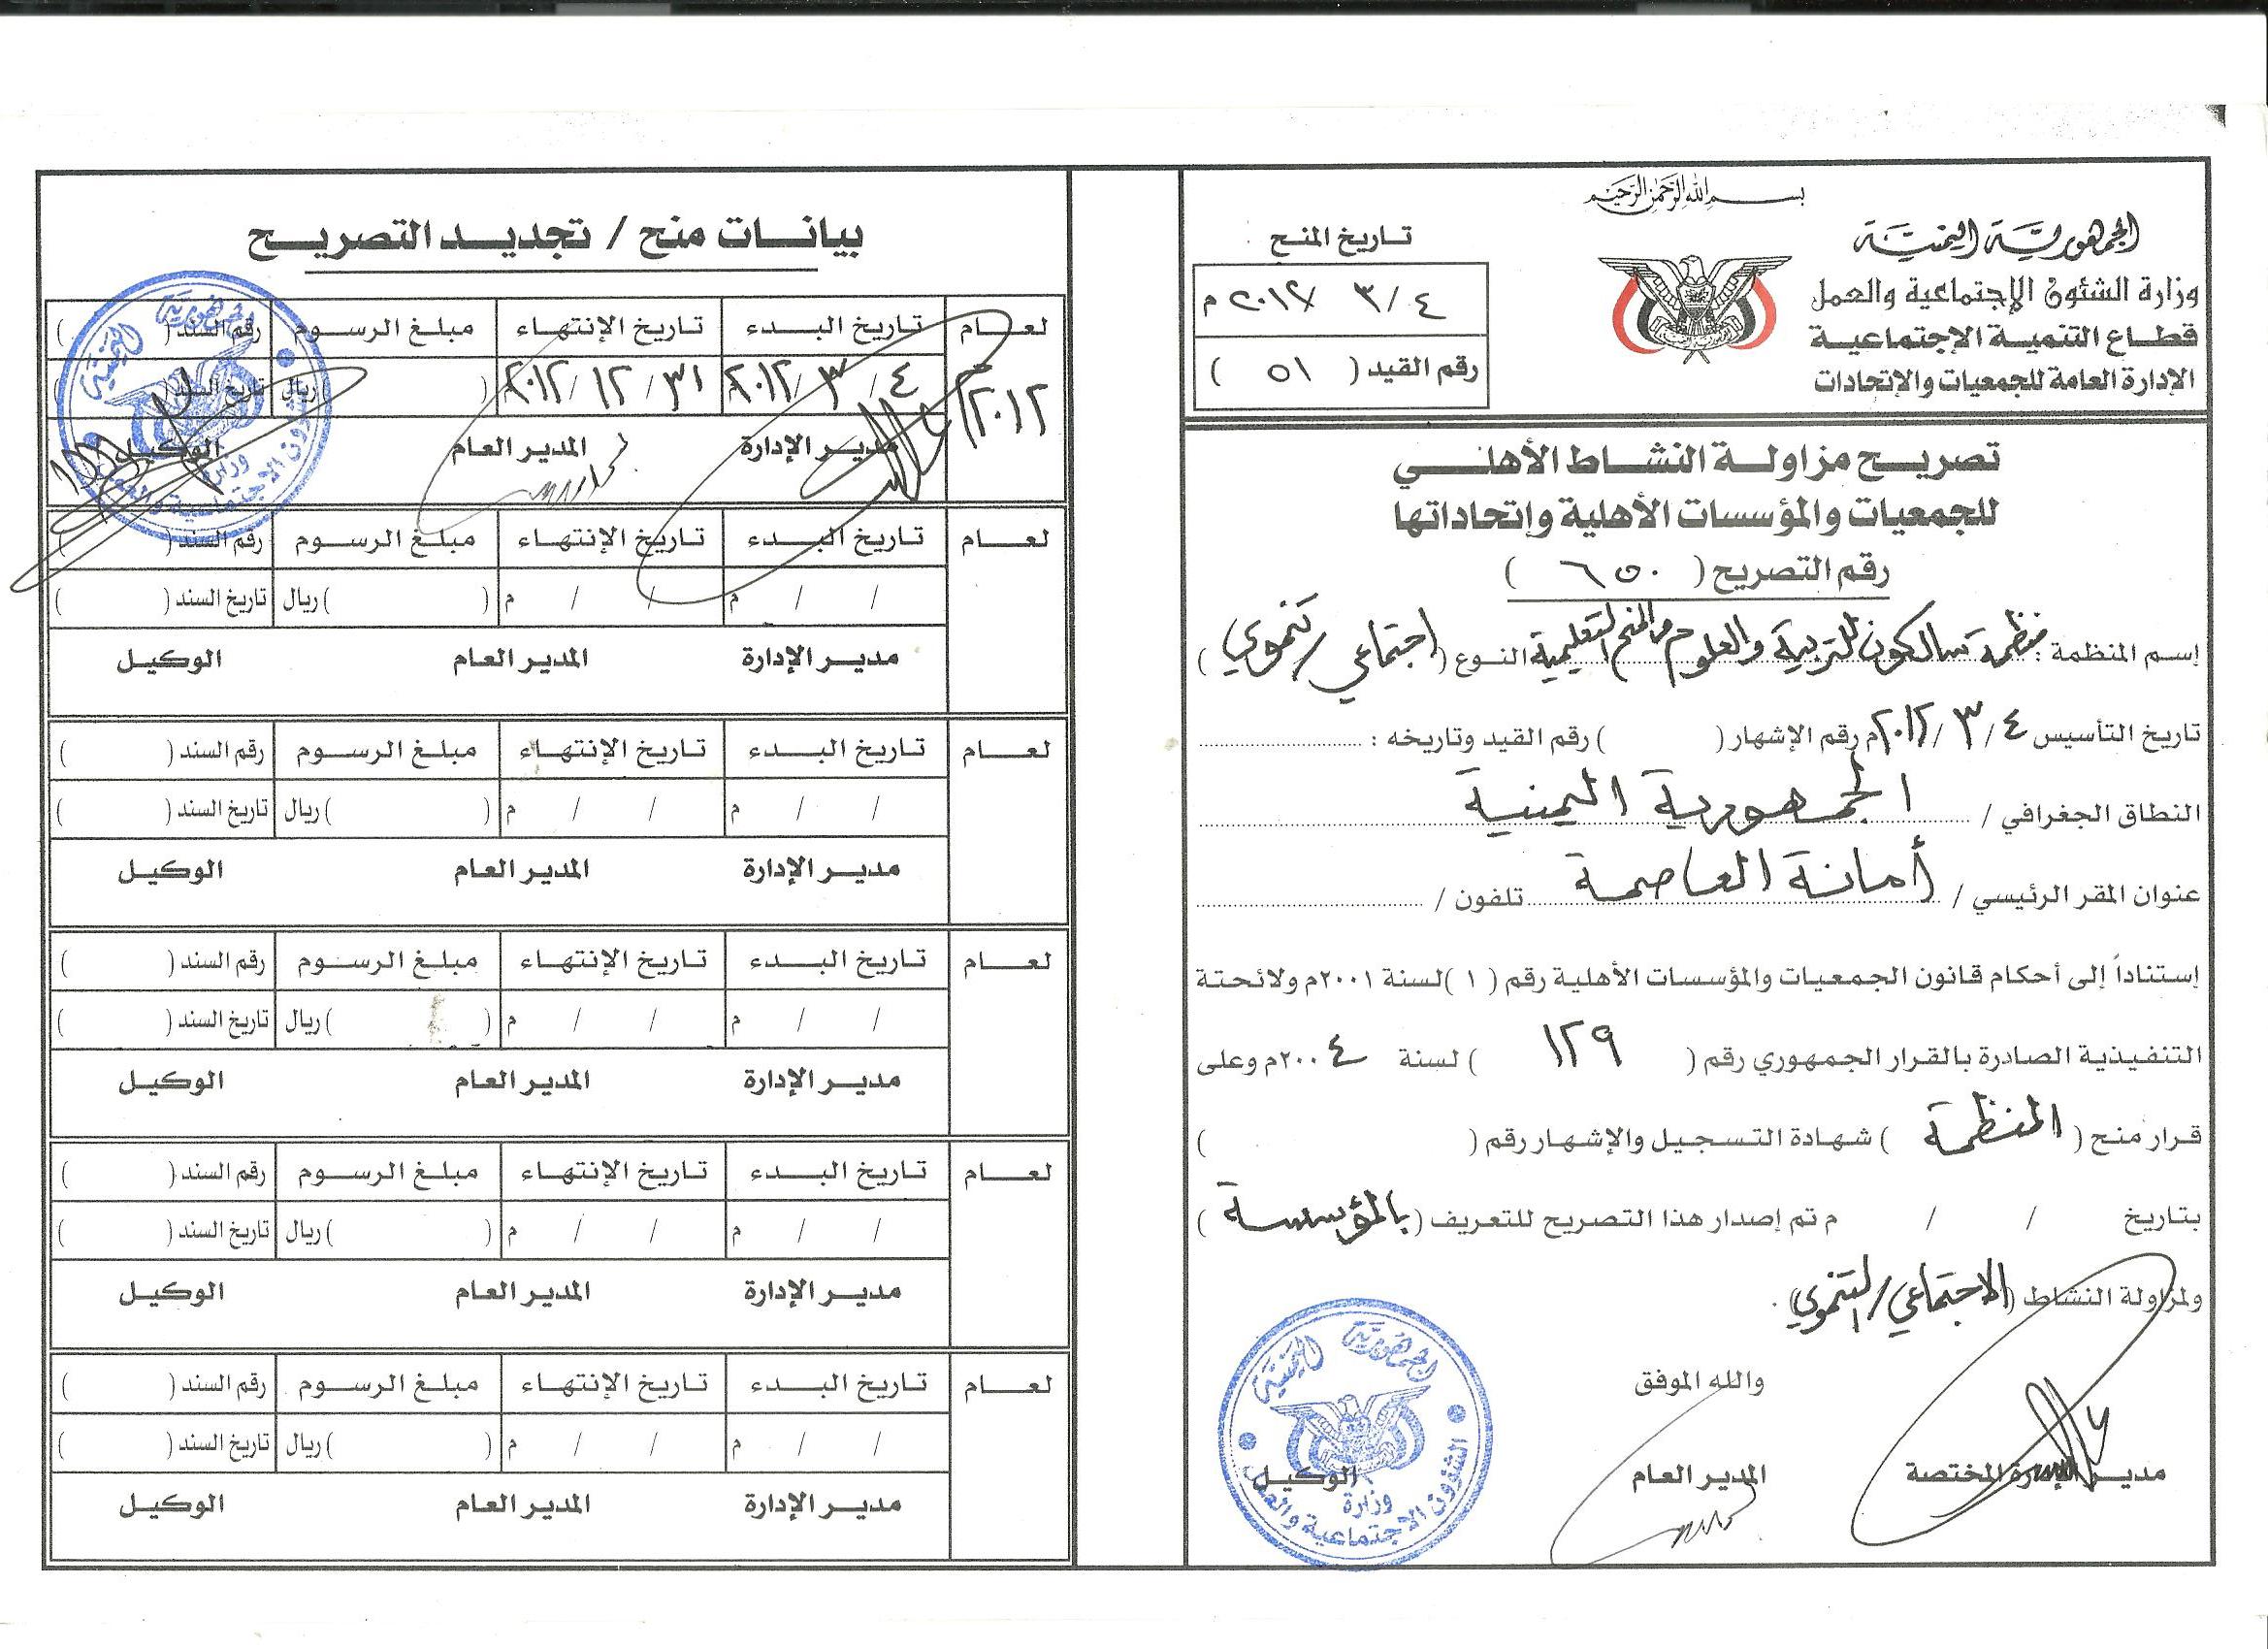 بسم الله الرحمن الرحيم
الجمهورية اليمنية
وزارة الشئون الإجتماعية والعمل
قطاع التنمية الإجتماعية
الإدارة العامة للجمعيات والإتحادات
تاريخ المنح
٤/ ٣ ٢٠١٢ م
رقم القيد ( ٥١ )
تصريح مزاولة النشاط الأهلي
للجمعيات والمؤسسات الأهلية وإتحاداتها
رقم التصريح ( ٦٥٠ )
إسم المنظمة : منظمة الكون للتربية والعلوم والمنح التعليمية النوع ( اجتماعي / تنموي )
تاريخ التأسيس ٤/ ٣/ ٢٠١٢م رقم الإشهار ( ) رقم القيد وتاريخه :
النطاق الجغرافي / الجمهورية اليمنية
عنوان المقر الرئيسي / أمانة العاصمة تلفون /
إستناداً إلى أحكام قانون الجمعيات والمؤسسات الأهلية رقم ( ١ ) لسنة ٢٠٠١م ولائحتة
التنفيذية الصادرة بالقرار الجمهوري رقم ( ١٢٩ ) لسنة ٢٠٠٤م وعلى
قرار منح ( المنظمة ) شهادة التسجيل والإشهار رقم ( )
بتاريخ / / م تم إصدار هذا التصريح للتعريف ( بالمؤسسة )
ولمزاولة النشاط ( الاجتماعي / التنموي ) .
والله الموفق
مدير الإدارة المختصة المدير العام الوكيل
الجمهورية اليمنية
وزارة الشؤون الاجتماعية والعمل
بيانات منح / تجديد التصريح
لعام تاريخ البدء تاريخ الإنتهاء مبلغ الرسوم رقم السند ( )
٢٠١٢ ٤ / ٣ / ٢٠١٢ ٣١ / ١٢ / ٢٠١٢ ( ) ريال تاريخ السند ( )
مدير الإدارة المدير العام الوكيل
الجمهورية اليمنية
وزارة الشؤون الاجتماعية والعمل
لعام تاريخ البدء تاريخ الإنتهاء مبلغ الرسوم رقم السند ( )
/ / م / / م ( ) ريال تاريخ السند ( )
مدير الإدارة المدير العام الوكيل
لعام تاريخ البدء تاريخ الإنتهاء مبلغ الرسوم رقم السند ( )
/ / م / / م ( ) ريال تاريخ السند ( )
مدير الإدارة المدير العام الوكيل
لعام تاريخ البدء تاريخ الإنتهاء مبلغ الرسوم رقم السند ( )
/ / م / / م ( ) ريال تاريخ السند ( )
مدير الإدارة المدير العام الوكيل
لعام تاريخ البدء تاريخ الإنتهاء مبلغ الرسوم رقم السند ( )
/ / م / / م ( ) ريال تاريخ السند ( )
مدير الإدارة المدير العام الوكيل
لعام تاريخ البدء تاريخ الإنتهاء مبلغ الرسوم رقم السند ( )
/ / م / / م ( ) ريال تاريخ السند ( )
مدير الإدارة المدير العام الوكيل